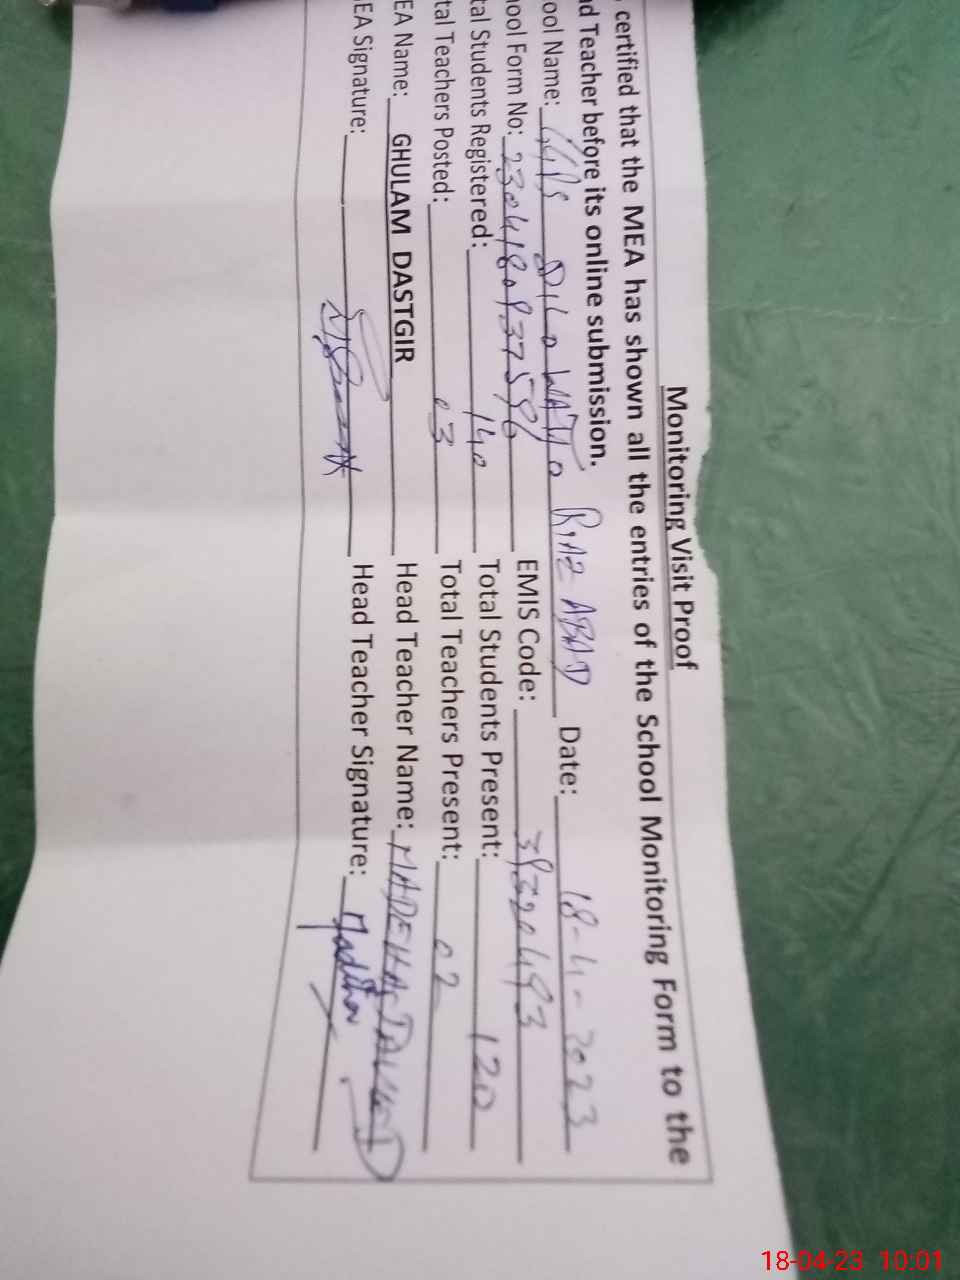 Monitoring Visit Proof
certified that the MEA has shown all the entries of the School Monitoring Form to the
d Teacher before its online submission.
ool Name: DILO WATTO RIAZ ABAD Date: 18-4-2023
ool Form No: EMIS Code: 39320493
tal Students Registered: 140 Total Students Present: 120
tal Teachers Posted: 03 Total Teachers Present: 02
EA Name: GHULAM DASTGIR Head Teacher Name: MADEHA DAWOOD
EA Signature: Head Teacher Signature: Madiha
18-04-23 10:01